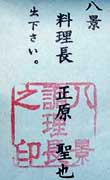 八景
料理長 正原 聖也
出下さい。
八景
調理長
之印